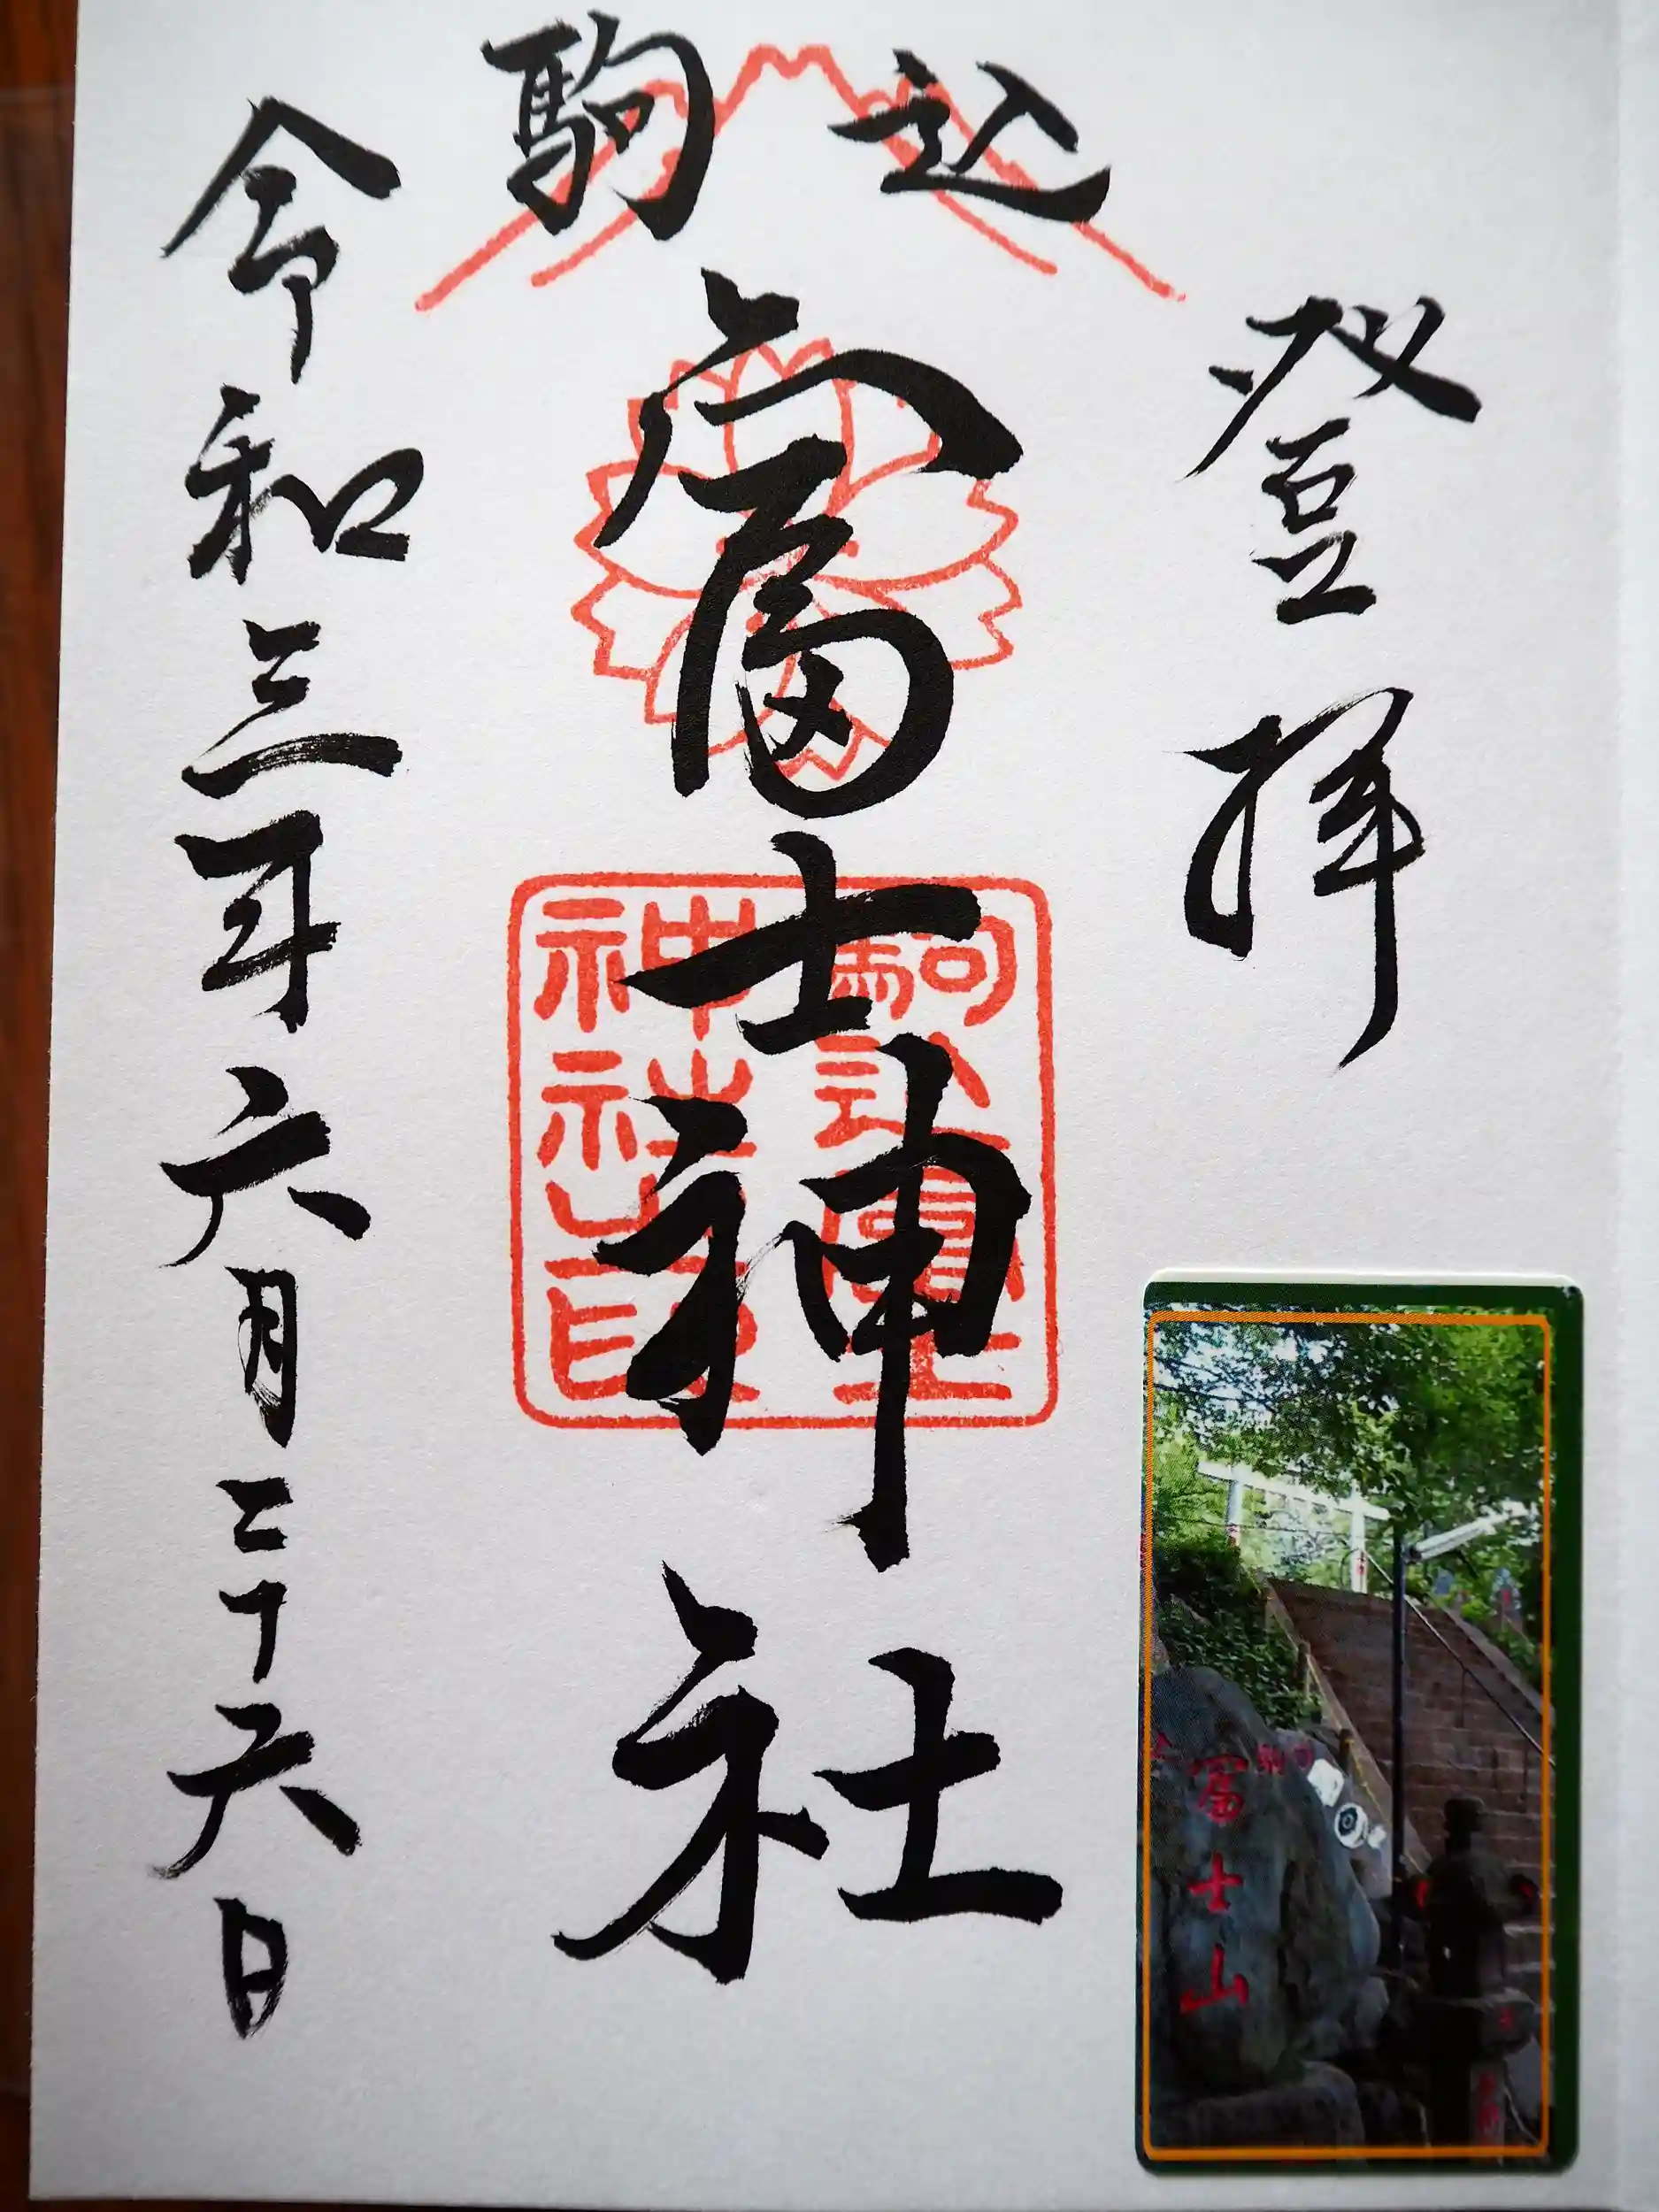 登拝
駒込
富士神社
令和三年六月二十六日
駒込富士
神社之印
富士山